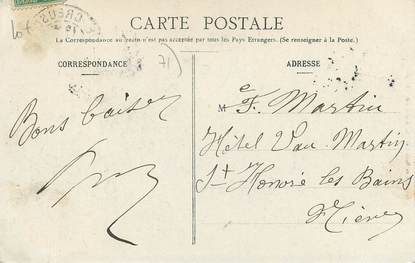 CARTE POSTALE
La Correspondance au recto n'est pas acceptée par tous les Pays Etrangers. (Se renseigner à la Poste.)
CORRESPONDANCE
71
ADRESSE
Bons baisers
Me F. Martin
Hôtel Vau. Martin
St Honoré les Bains
Nièvre